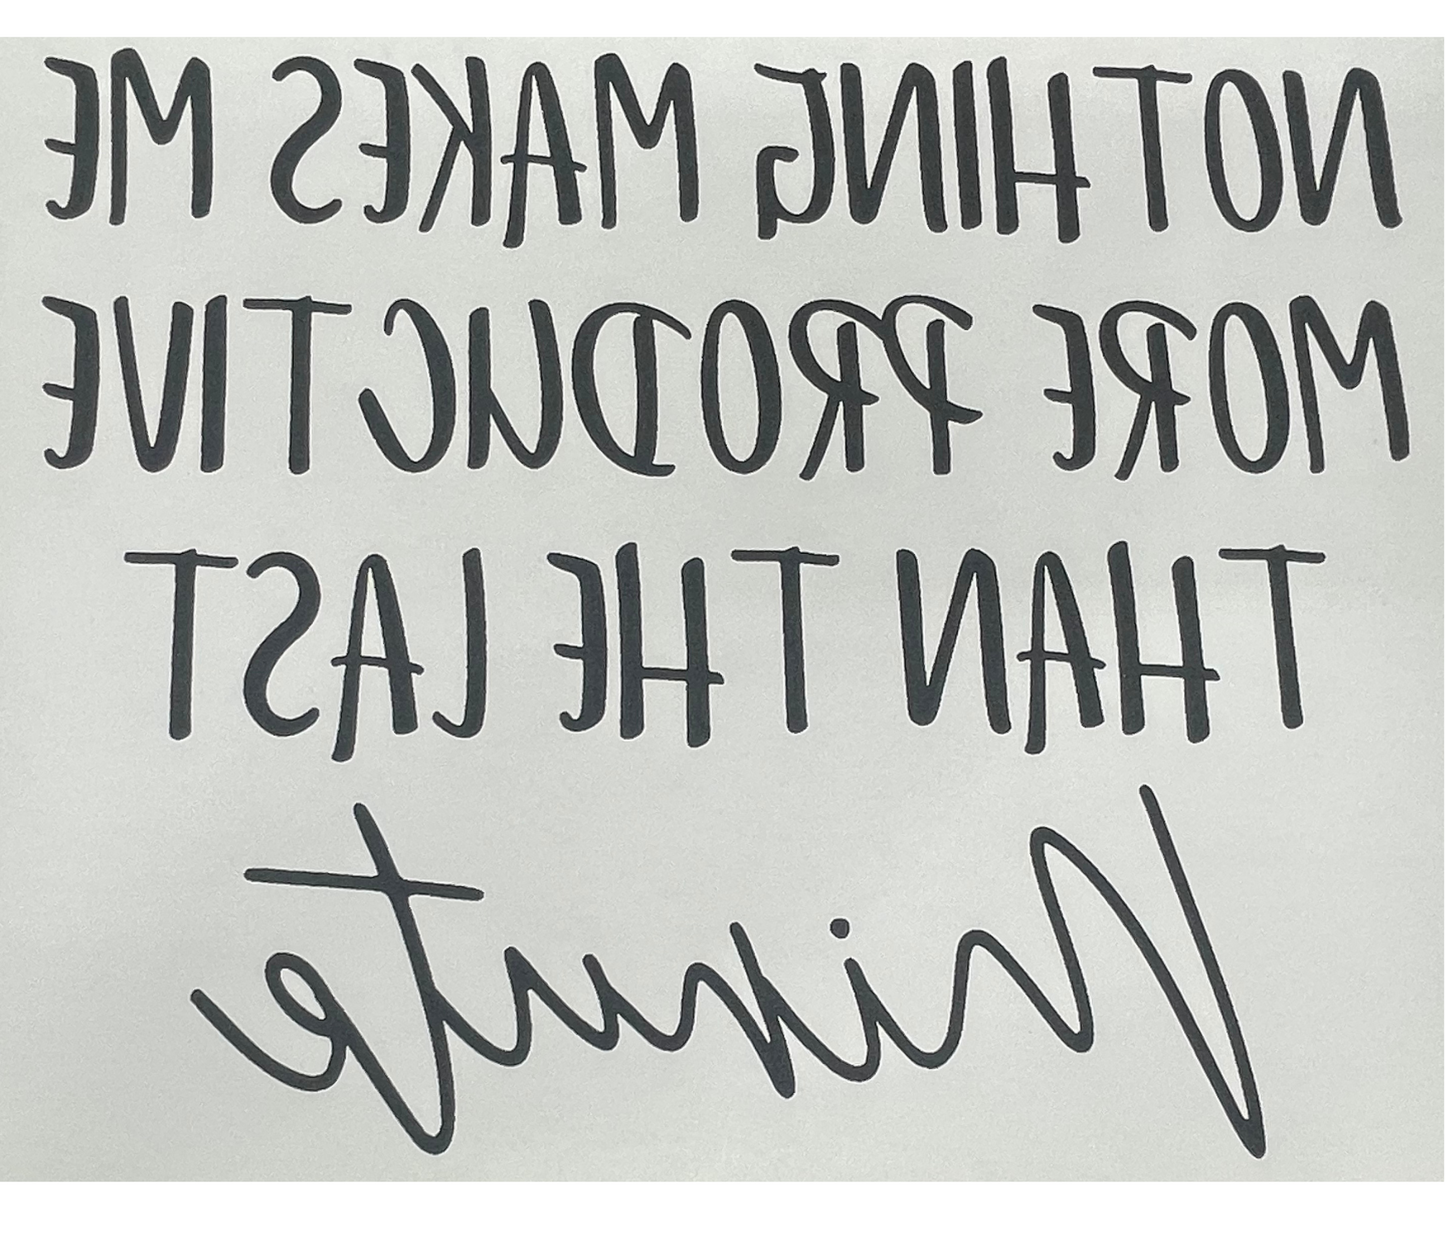 NOTHING MAKES ME
MORE PRODUCTIVE
THAN THE LAST
Minute